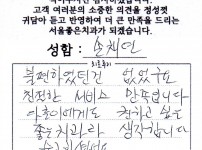 고객 여러분의 소중한 의견을 정성껏
귀담아 듣고 반영하여 더 큰 만족을 드리는
서울좋은치과가 되겠습니다.
성함 :
불편하였던건 없었구요
친절한 서비스 만족합니다
다음에에게도 권하고 싶은
좋은치과라 생각합니다